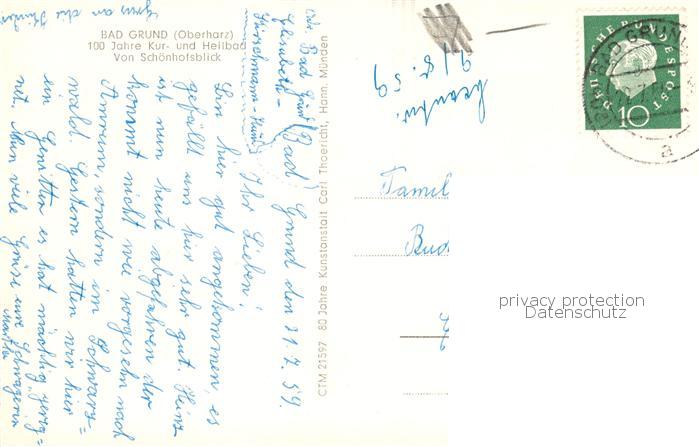 Gruss an die Kinder
BAD GRUND (Oberharz)
100 Jahre Kur- und Heilbad
Von Schönhofsblick
Adr. Bad Grund
Elisabeth-
Bad Grund den 21.7.59.
Ihr Lieben!
Sind hier gut angekommen, es
gefällt uns hier sehr gut. Heinz
ist nun heute abgefahren der
kommt nicht wie vorgesehn nach
Amrum, sondern im Schwarz=
wald. Gestern hatten wir hier
ein Gewitter es hat mächtig
Nun viele Grüsse eure Schwägerin
Martha
CTM 21597 80 Jahre Kunstanstalt Carl Thoericht, Hann. Münden
beantw.
9/8.59
DEUTSCHE BUNDESPOST
10
BAD GRUND
a
Famil
Bud
privacy protection
Datenschutz